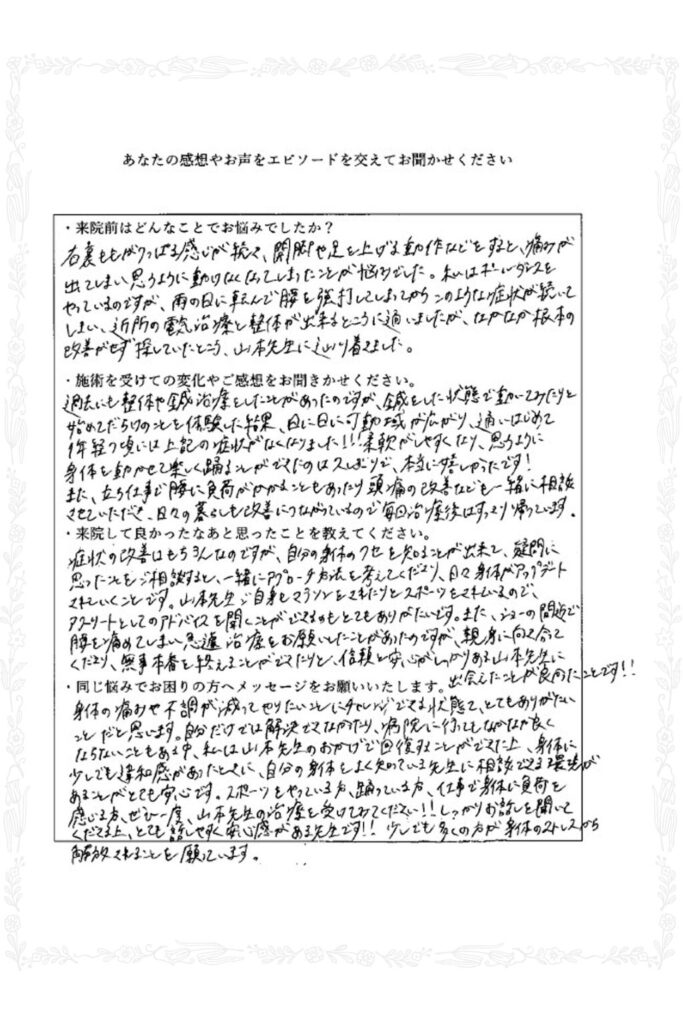 あなたの感想やお声をエピソードを交えてお聞かせください
・来院前はどんなことでお悩みでしたか？
右裏ももがつっぱる感じが続き、開脚や足を上げる動作などをすると、痛みが
出てしまい思うように動けなくなってしまったことが悩みでした。私はポールダンスを
やっているのですが、雨の日に転んで腰を強打してしまってからこのような症状が続いて
しまい、近所の電気治療と整体が出来るところに通いましたが、なかなか根本の
改善がせず探していたところ、山本先生に辿り着きました。
・施術を受けての変化やご感想をお聞きかせください。
過去にも整体や鍼治療をしたことがあったのですが、鍼をした状態で動いてみたりと
始めてだらけのことを体験した結果、日に日に可動域が広がり、通いはじめて
1年経つ頃には上記の症状がなくなりました!!! 柔軟がしやすくなり、思うように
身体を動かせて楽しく踊ることができたのは久しぶりで、本当に嬉しかったです!
また、立ち仕事で腰に負荷がかかることもあったり頭痛の改善なども一緒に相談
させていただき、日々の暮らしも改善につながっているので毎回治療後はすっきり帰っています。
・来院して良かったなあと思ったことを教えてください。
症状の改善はもちろんなのですが、自分の身体のクセを知ることが出来て、疑問に
思ったことをご相談すると、一緒にアプローチ方法を考えてくださり、日々身体がアップデート
されていくことです。山本先生ご自身もマラソンをされたりとスポーツをされているので、
アスリートとしてのアドバイスを聞くことができるのもとてもありがたいです。また、ショーの間近で
腰を痛めてしまい急遽治療をお願いしたことがあったのですが、親身に向き合って
くださり、無事本番を終えることができたりと、信頼と安心がしっかりある山本先生に
出会えたことが良かったことです!!
・同じ悩みでお困りの方へメッセージをお願いいたします。
身体の痛みや不調が減ってやりたいことにチャレンジできる状態て、とてもありがたい
ことだと思います。自分だけでは解決できなかったり、病院に行ってもなかなか良く
ならないこともある中、私は山本先生のおかげで回復することができた上、身体に
少しでも違和感があったときに、自分の身体をよく知っている先生に相談できる環境が
あることがとても安心です。スポーツをやっている方、踊っている方、仕事で身体に負荷を
感じる方、ぜひ一度、山本先生の治療を受けてみてください!! しっかりお話しを聞いて
くださる上、とても話しやすく安心感がある先生です!! 少しでも多くの方が身体のストレスから
解放されることを願っています。